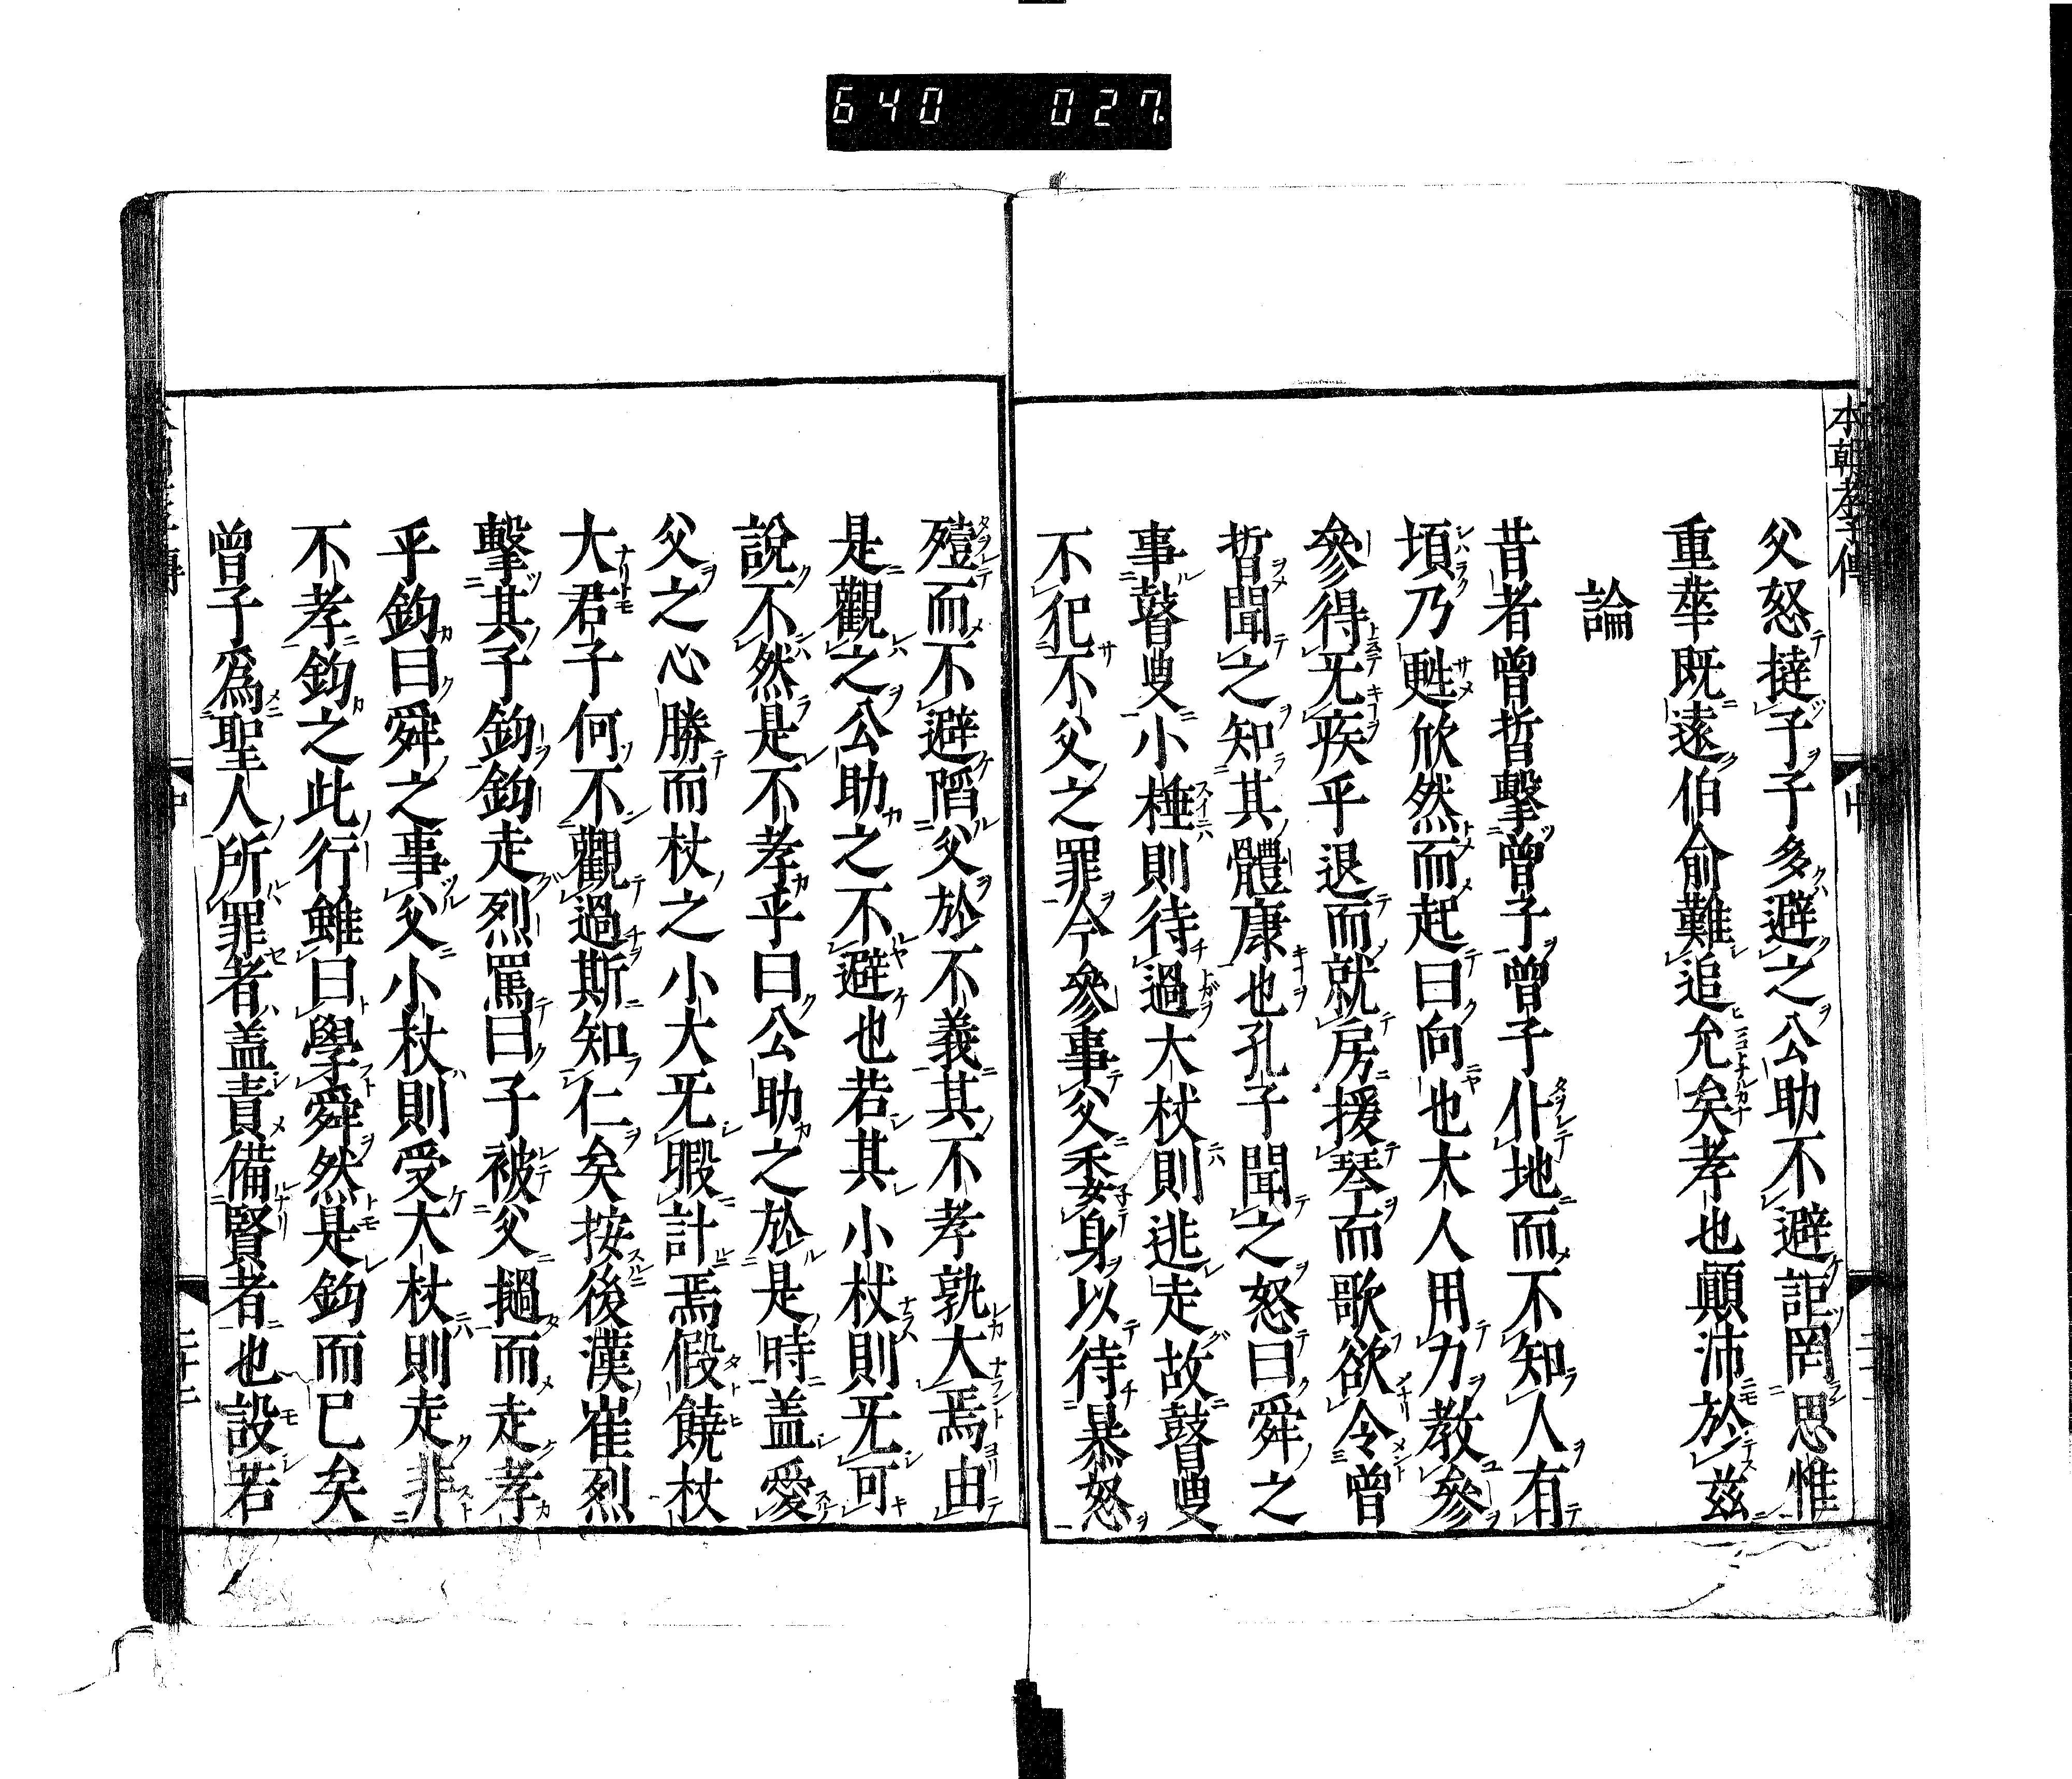 640 027
本朝孝子傳
父怒撻子子多避之公助不避詎罔思惟
重華既遠伯俞難追允矣孝也顚沛於茲
論
昔者曾晳擊曾子曾子仆地而不知人有
頃乃甦欣然而起曰向也大人用力教參
參得无疾乎退而就房援琴而歌欲令曾
晳聞之知其體康也孔子聞之怒曰舜之
事瞽叟小棰則待過大杖則逃走故瞽叟
不犯不父之罪今參事父委身以待暴怒
殪而不避陷父於不義其不孝孰大焉由
是觀之公助之不避也若其小杖則无可
說不然是不孝乎曰公助之於是時盖愛
父之心勝而杖之小大无暇計焉假饒杖
大君子何不觀過斯知仁矣按後漢崔烈
擊其子鈞鈞走烈罵曰子被父撾而走孝
乎鈞曰舜之事父小杖則受大杖則走非
不孝鈞之此行雖曰學舜然是鈞而已矣
曾子爲聖人所罪者盖責備賢者也設若